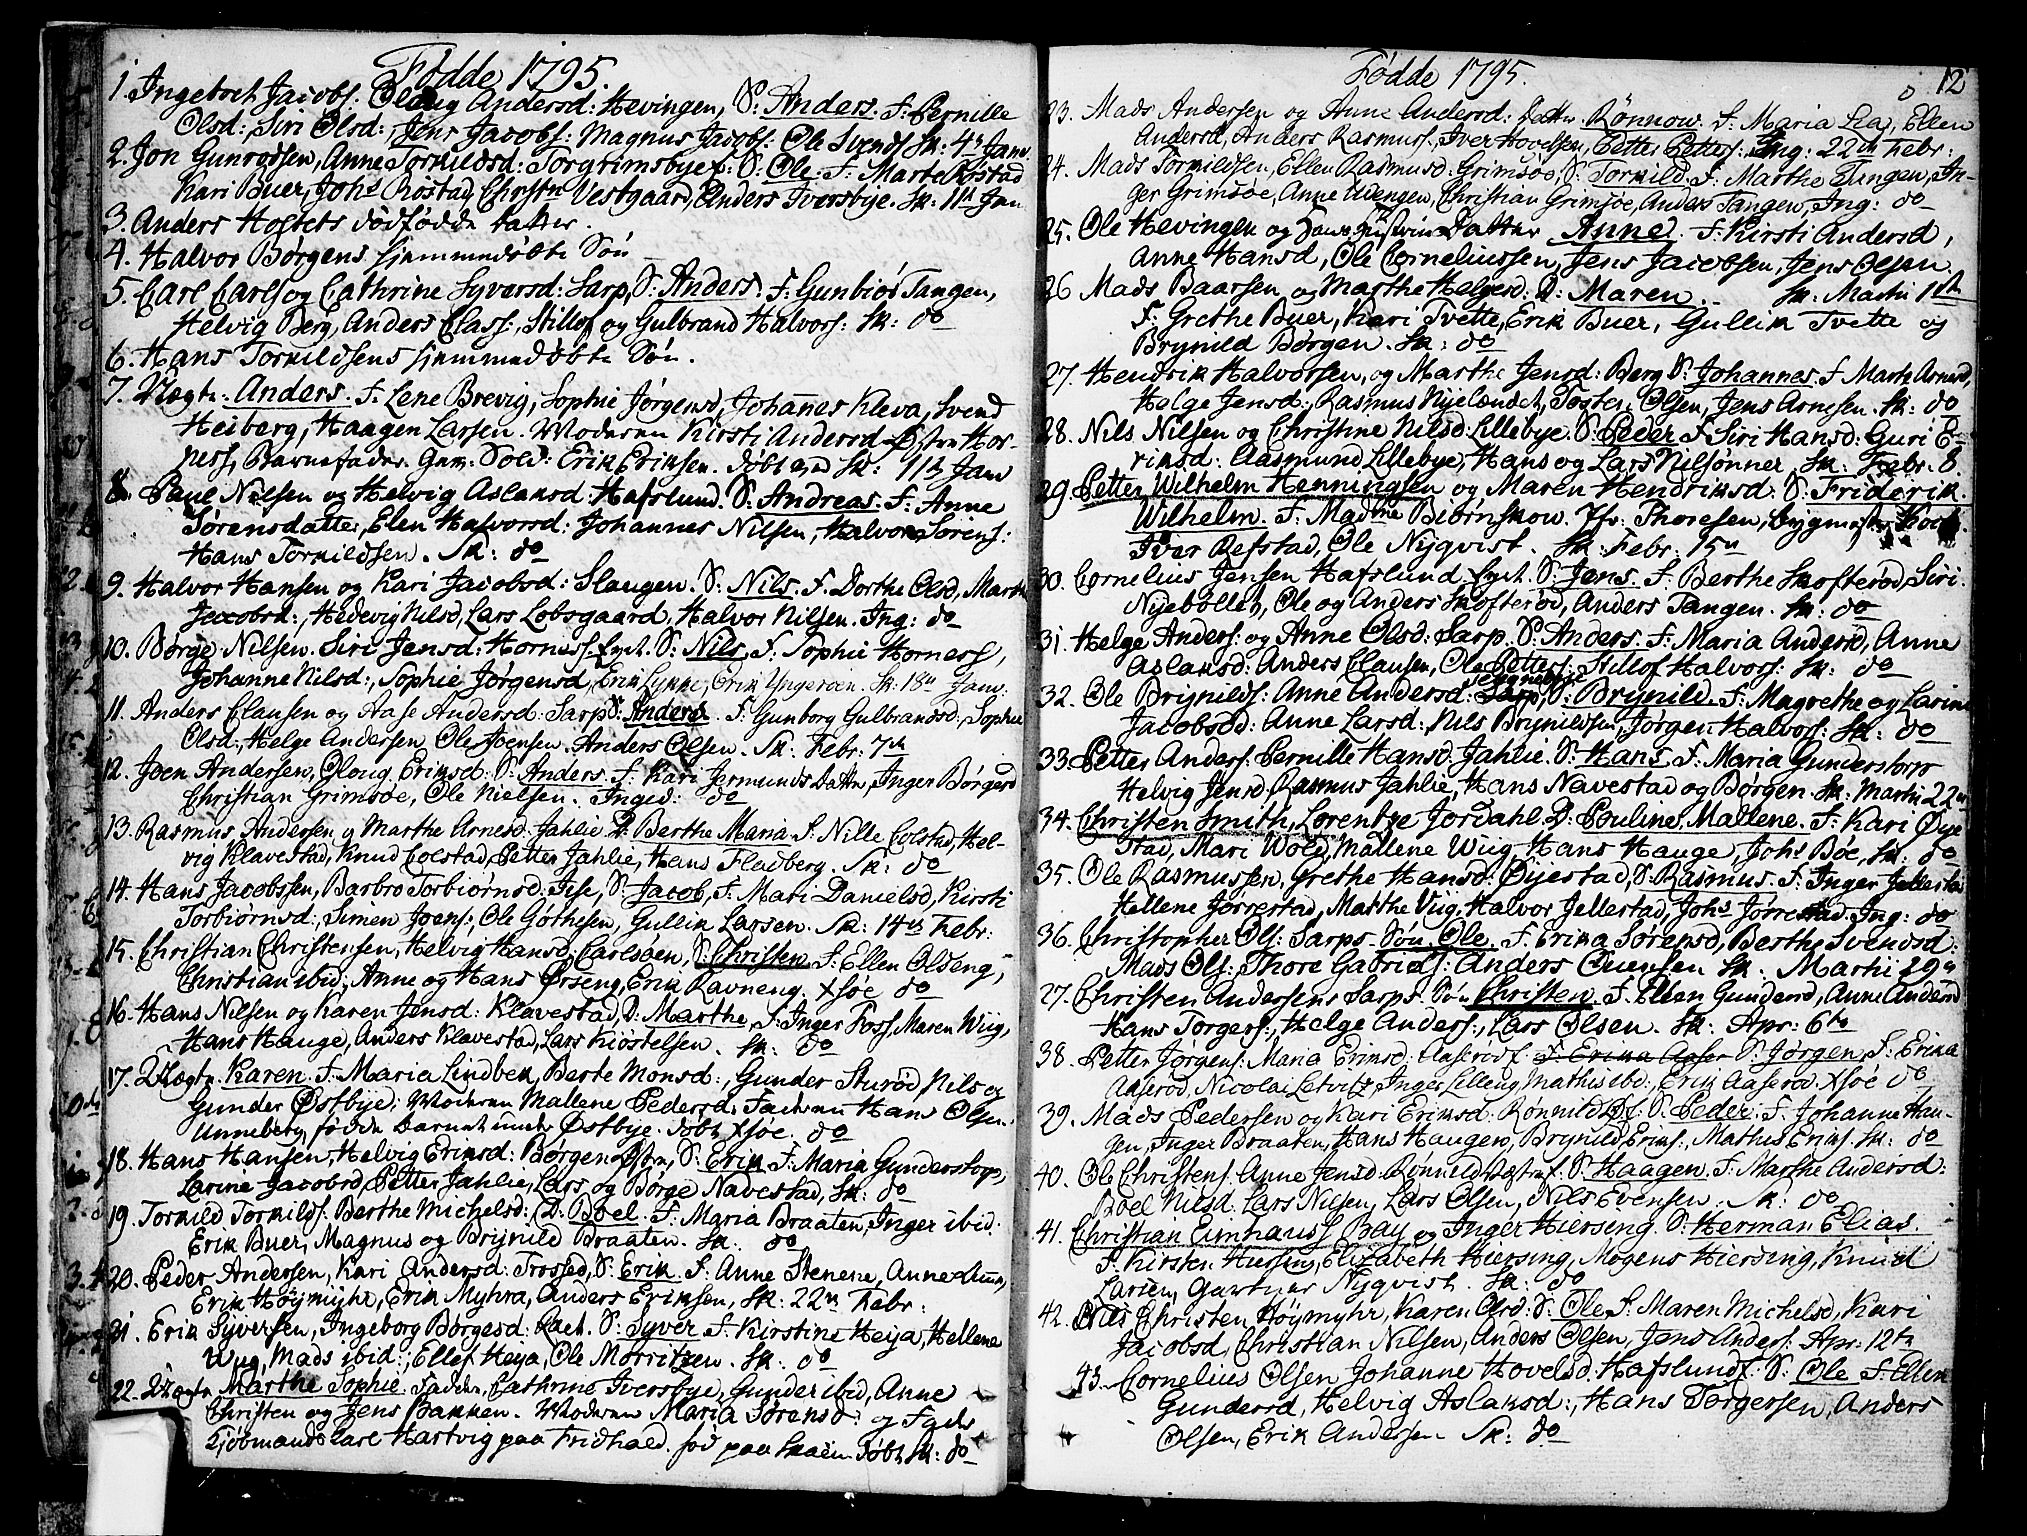 Fødde 1795.
1. Ingebret Jacobs: Oloug Andersd: Hevingen, S: Anders. F: Pernille
Olsd: Siri Olsd:, Jens Jacobs: Magnus Jacobs: Ole Svends Sk: 4de Janv
2. Jon Gunrodsen, Anne Torkildsd: Torgrimsbye S: Ole. F: Marte Røstad
Kari Buer, Johs Røstad, Christn Vestgaard, Anders Iversbye. Sk: 11te Jan
3. Anders Hosters dødfødde datter.
4. Halvor Børgens hjemmedøbte Søn
5. Carl Carls og Cathrine Syversd: Sarp, S: Anders. F: Gunbiør Tangen,
Helvig Berg, Anders Class:, Stillof og Gulbrand Halvors: Sk: do
6. Hans Torkildsens hjemmedøbte Søn.
7. Uægte. Anders. F: Lene Brevig, Sophie Jørgensd, Johannes Kleva, Svend
Heiberg, Haagen Larsen. Moderen Kirsti Andersd Østre Hor-
ness, Barnefader Gev: Sold: Erik Eriksen. døbt Sk: 11te Janv
8. Paul Nilsen og Helvig Aslaksd Hafslund. S: Andreas. F: Anne
Sørensdatter, Elen Halvorsd: Johannes Nilsen, Halvor Sørens:
Hans Torkildsen. Sk: do
9. Halvor Hansen og Kari Jacobsd: Slangen. S: Nils. F: Dorthe Olsd, Marthe
Jacobsd:, Hedevig Nilsd, Lars Lobsgaard, Halvor Nilsen. Ing: do
10. Børge Nilsen. Siri Jensd: Horness. S: Nils. F: Sophie Horness,
Johanne Nilsd:, Sophie Jørgensd, Erik Lykke, Erik Ungeroen. Sk: 18de Janv:
11. Anders Clausen og Aase Andersd: Sarp S: Anders F: Gunborg Gulbrandsd:, Sophie
Olsd:, Helge Andersen Ole Joensen. Anders Olsen. Sk: Febr: 7de
12. Joen Andersen, Oloug Eriksd: S: Anders. F: Kari Jermunds Dattr, Inger Børgesd
Christian Grimsøe, Ole Nielsen. Inged: do
13. Rasmus Andersen og Marthe Arnesd: Jahlie D: Berthe Maria F: Nille Colstad, Hel-
vig Klavestad, Knud Colstad, Petter Jahlie, Hans Fladberg. Sk: do
14. Hans Jacobssen, Barbro Torbiørnsd: Ise, S: Jacob, F: Mari Danielsd, Kirsti
Torbiørnsd:, Simen Joens:, Ole Gøthesen, Gullik Larsen. Sk: 14de Febr:
15. Christian Christensen, Helvig Hansd, Carlsøen, S: Christen F: Ellen Olseng,
Christian ibid, Anne og Hans Ørseng, Erik Ravneng. Xsøe do
16. Hans Nilsen og Karen Jensd: Klavestad, D: Marthe, F: Inger Foss, Maren Wiig,
Hans Hauge, Anders Klavestad, Lars Kiøstelsen. Sk: do
17. Uægte. Karen. F: Maria Lindbek, Berte Monsd:, Gunder Sturød, Nils og
Gunder Østbye; Moderen Mallene Pedersd: Faderen Hans Olsen.
Unneberg, fødde Barnet under Østbye. døbt Xsøe. do
18. Hans Hansen, Helvig Eriksd: Børgen Østre, S: Erik F: Maria Gunderstorp,
Larine Jacobsd, Petter Jahlie, Lars og Børge Navestad, Sk: do
19. Torkild Torkilds: Berthe Michelsd: D: Boel. F: Maria Braaten, Inger ibid:
Erik Buer, Magnus og Brynild Braaten. Sk: do
20. Peder Andersen, Kari Andersd: Trosted, S: Erik F: Anne Stenene, Anne
Erik Høymyhr, Erik Myhra, Anders Eriksen, Sk: 22de Febr:
21. Erik Syversen, Ingeborg Børgesd: S: Syver F: Kirstine Heija, Hellene
Wug, Mads ibid:, Ellef Heija, Ole Morritzen. Sk: do
22. Uægte Marthe Sophie. Fadder, Cathrine Iversbye, Gunder ibid, Anne
Christen og Jens Bakken. Moderen Maria Sørensd: og
Kjøbmand Carl Hartvig paa Fridhald. fød paa Skaien. døbt Sk: do
Fødde 1795. 12
23. Mads Andersen og Anne Andersd: Datter Rønnow. F: Maria Lea, Ellen
Andersd, Anders Rasmuss:, Iver Hovelsen, Petter Petters: Ing: 22de Febr:
24. Mads Torkildsen, Ellen Rasmusd: Grimsøe, S: Torkild F: Marthe Tangen, In-
ger Grimsøe, Anne Auengen, Christian Grimsøe, Anders Tangen, Ing: do
25. Ole Hevingen og Hans Hustrues Datter Anne. F: Kirsti Andersd,
Anne Hansd, Ole Corneliussen, Jens Jacobsen, Jens Olsen
Sk: Martii 1ste
26 Mads Baarsen og Marthe Helgesd: D: Maren.
F: Grethe Buer, Kari Tvette, Erik Buer, Gullik Tvette og
Brynild Børgen. Sk: do
27. Hendrik Halvorsen, og Marthe Jensd: Berg S: Johannes. F Marte Arnesd,
Helge Jensd:, Rasmus Nyelændet, Tosten Olsen, Jens Arnesen. Sk: do
28. Nils Nilsen og Christine Nilsd: Lillebye. S: Peder F: Siri Hansd: Guri E-
riksd: Aasmund Lillebye, Hans og Lars Nilsønner, Sk: Febr. 8.
29 Petter Wilhelm Henningsen og Maren Hendriksd: S: Friderik
Wilhelm. F: Madme Biørnskow. Jfr: Thoresen, bygmester Koch.
Iver Refstad, Ole Nyqvist. Sk: Febr: 15de
30. Cornelius Jensen Hafslund S: Jens. F: Berthe Skofterød, Siri
Nyebøllet, Ole og Anders Skofterød, Anders Tangen. Sk: do
31. Helge Anders: og Anne Olsd: Sarp S: Anders. F: Maria Andersd, Anne
Aslaksd: Anders Clausen, Ole Petters: Stillof Halvors: Sk: do
32. Ole Brynilds: Anne Andersd: Sarp, S: Brynild. F: Magrethe og Larine
Jacobsd: Anne Larsd: Nils Brynildsen, Jørgen Halvors: Sk: do
33. Petter Anders: Pernille Hansd: Jahlie. S: Hans. F: Maria Gunderstorp
Helvig Jensd, Rasmus Jahlie, Hans Navestad og Børgen. Sk: Martii 22de
34. Christen Smith, Lorentze Jordahl D: Pouline Mallene. F: Kari Øye
stad, Mari Wold, Mallene Wug, Hans Hauge, Johs Bøe, Sk: do
35. Ole Rasmussen, Grethe Hansd: Øyestad, S: Rasmus. F: Inger Jellestad
Hellene Jørrestad, Marthe Vug, Halvor Jellestad, Johs Jørrestad. Ing: do
36. Christopher Ols: Sarps. Søn. Ole. F: Erika Sørensd, Berthe Svendsd:
Mads Ols: Thore Gabriels: Anders Svensen Sk: Martii 29de
27. Christen Andersens Sarps. Søn Christen. F: Ellen Gundersd, Anne Andersd
Hans Torgers:, Helge Anders:, Lars Olsen. Sk: Apr: 6te
38. Petter Jørgens: Maria Eriksd: Aaserød F: Erika Aaser S: Jørgen F: Erika
Aaserød, Nicolai Letvitz, Inger Lilleng, Mathis ibid:, Erik Aaserød. Xsøe do
39. Mads Pedersen og Kari Eriksd: Rønnild S: Peder. F: Johanne Hau-
gen, Inger Braaten, Hans Haugen, Brynild Eriks:, Mathis Eriks. Sk: do
40. Ole Christens: Anne Jensd: Rønneld S: Haagen. F: Marthe Andersd:
Boel Nilsd: Lars Nilsen, Lars Olsen, Nils Evensen. Sk: do
41. Christian Eunhaus Bay og Inger Hiersing. S: Herman Elias.
F: Kirsten Hiersing, Elizabeth Hiersing, Mogens Hiersing, Knud
Larsen, Gartner Nyqvist. Sk: do
42. Christen Høymyhr, Karen Olsd: S: Ole F: Maren Michelsd, Kari
Jacobsd, Christian Nilsen, Anders Olsen, Jens Anders: Apr: 12te
43. Cornelius Olsen Johanne Hovelsd. Hafslund. S: Ole F: Ellen
Gundersd, Helvig Aslaksd:, Hans Torgersen, Anders
Olsen, Erik Andersen Sk: do